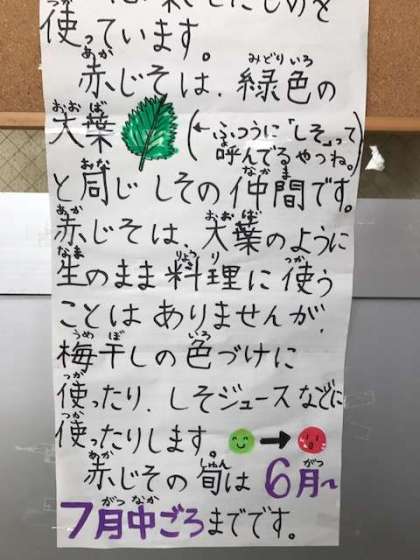 使っています。
赤じそは、緑色の
大葉 (←ふつうに「しそ」って
呼んでるやつね。)
と同じ しその仲間です。
赤じそは、大葉のように
生のまま料理に使う
ことは ありませんが、
梅干しの色づけに
使ったり、しそジュースなどに
使ったりします。
赤じその旬は 6月〜
7月中ごろまでです。